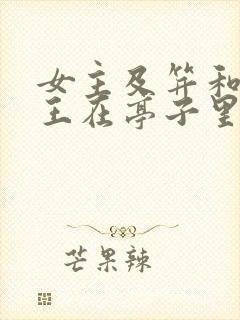 女主及笄和
王在亭子里
芒果辣